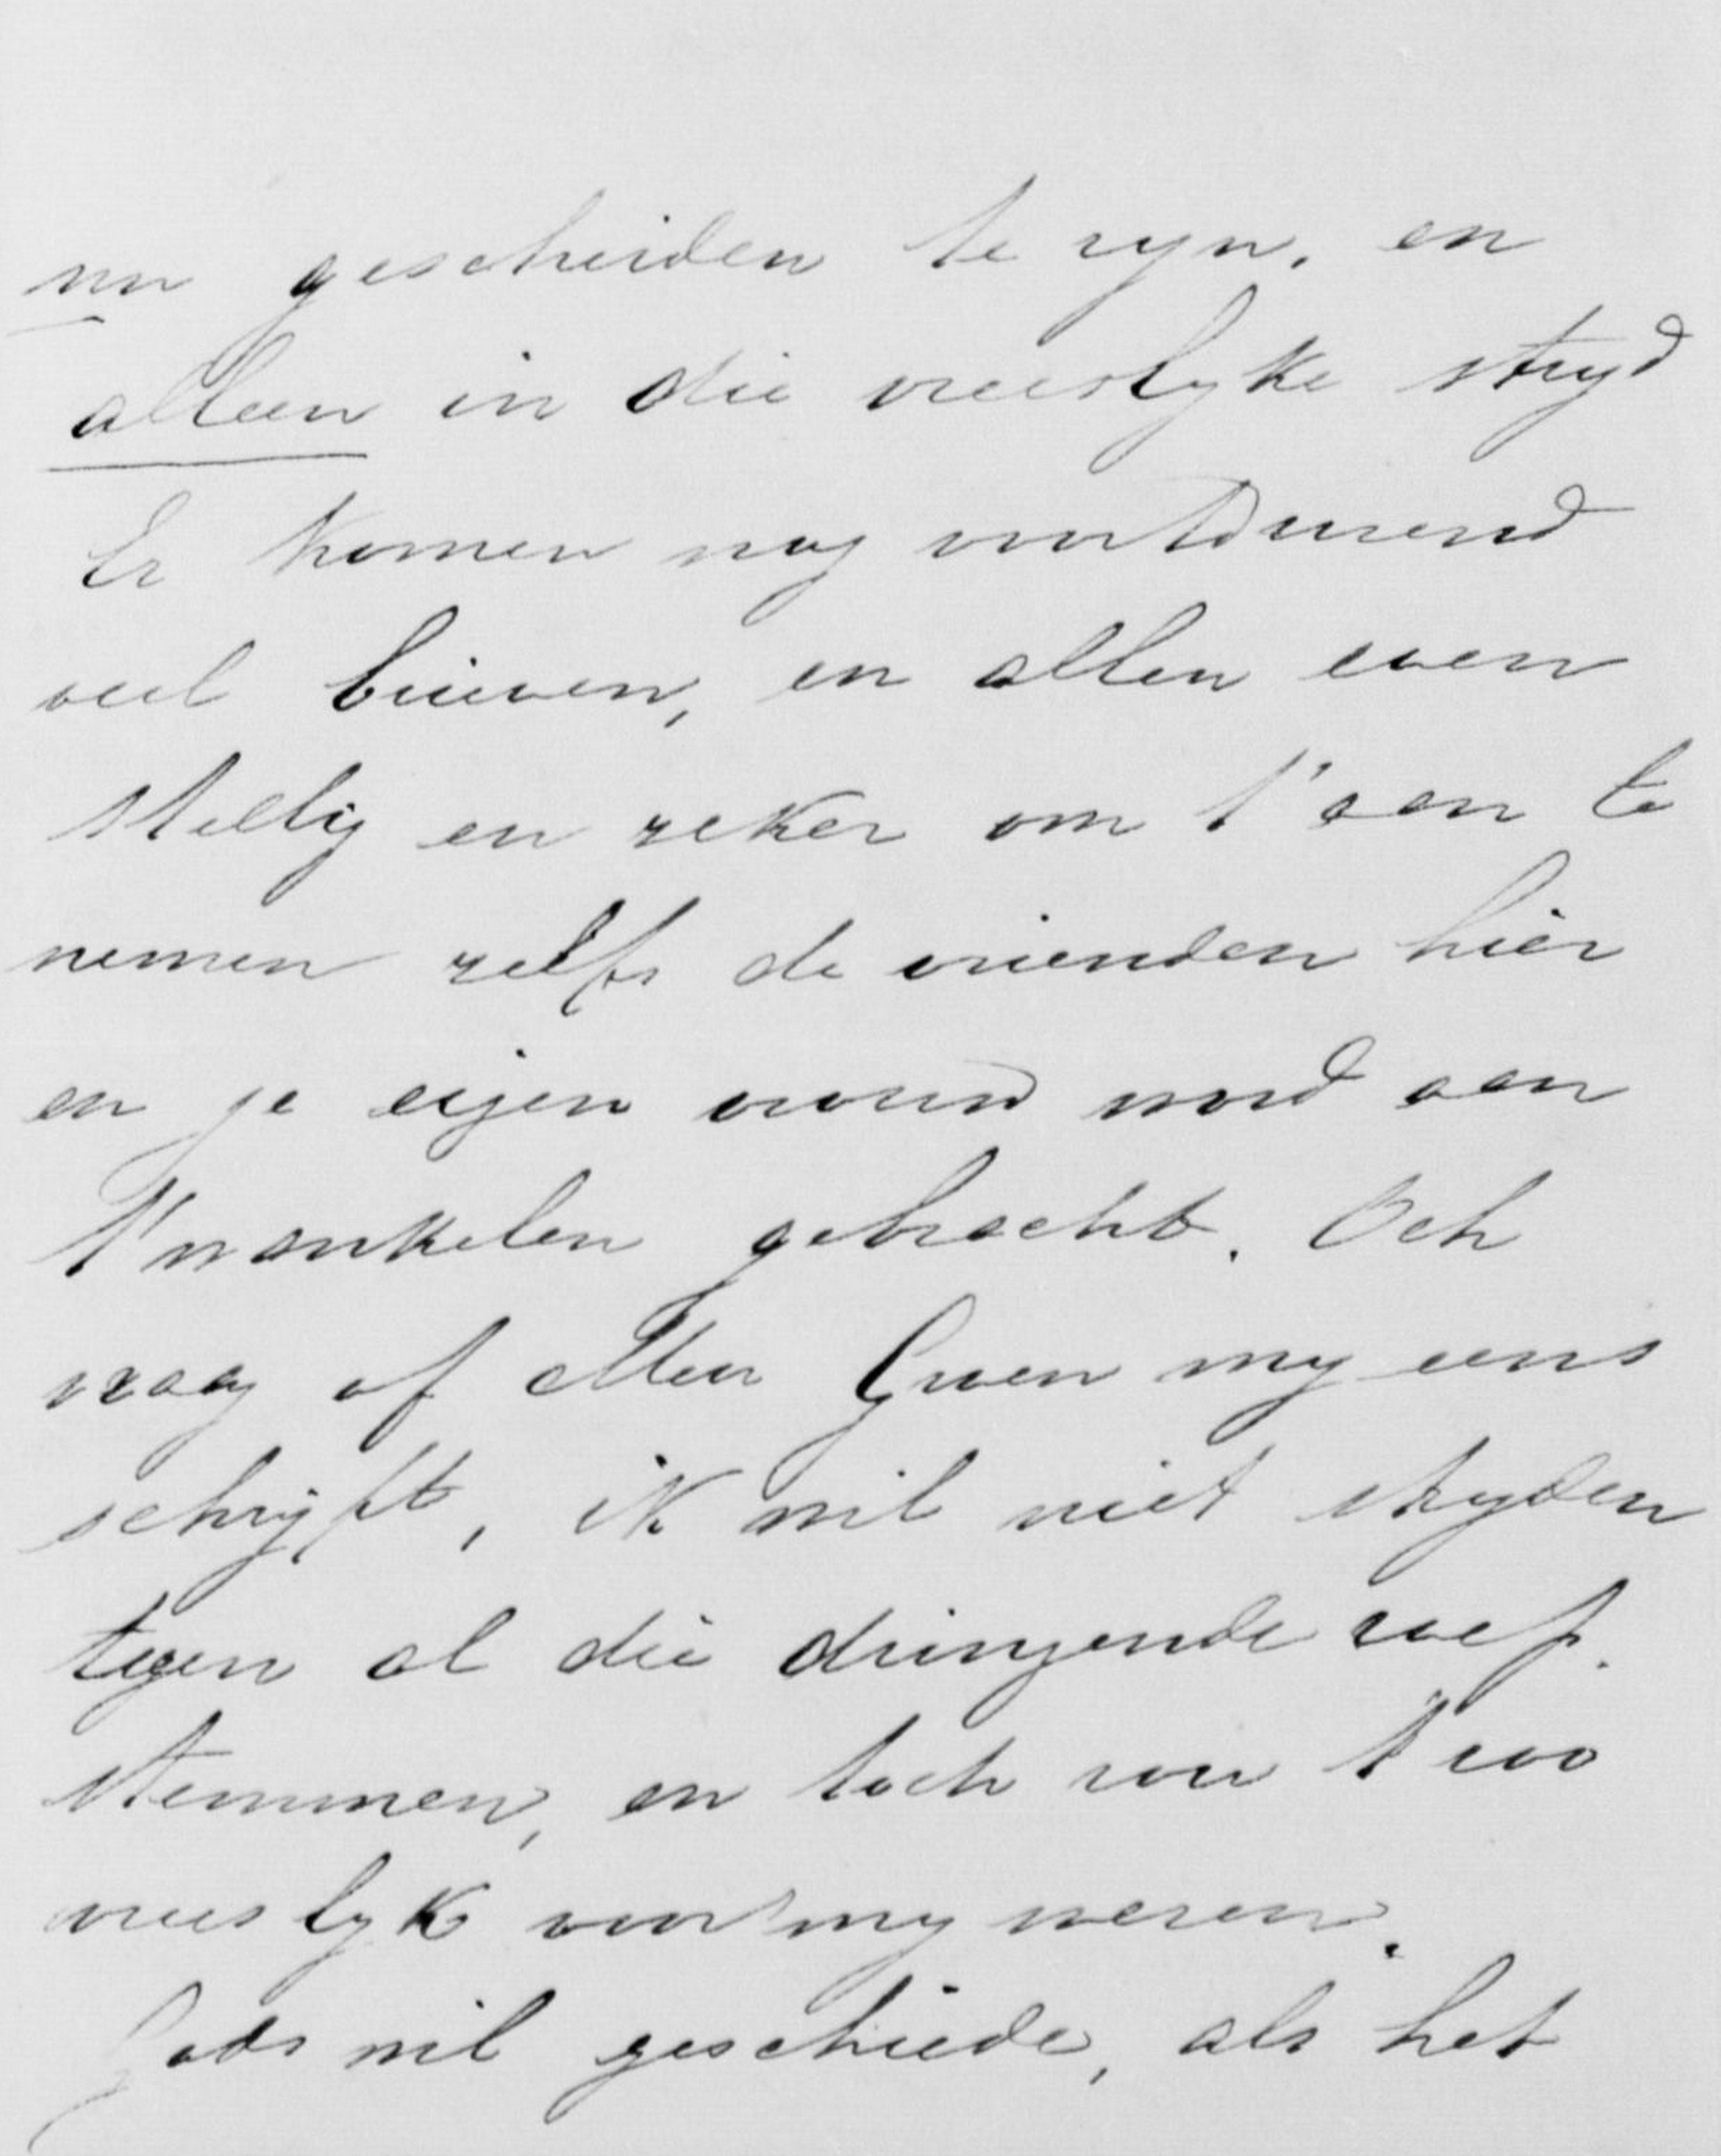 nu gescheiden te zyn. en
alleen in die vreeslyke stryd
Er komen nog voortdurend
veel brieven, en allen even
stellig en zeker om t'aan te
nemen zelfs de vrienden hier
en je eigen vrouw word aan
t'wankelen gebracht. Och
vraag of Mevr Groen my eens
schryft, ik wil niet stryden
tegen al die dringende roep.
stemmen, en toch zou t zoo
vreeslyk voor my wezen.
Gods wil geschiede, als het